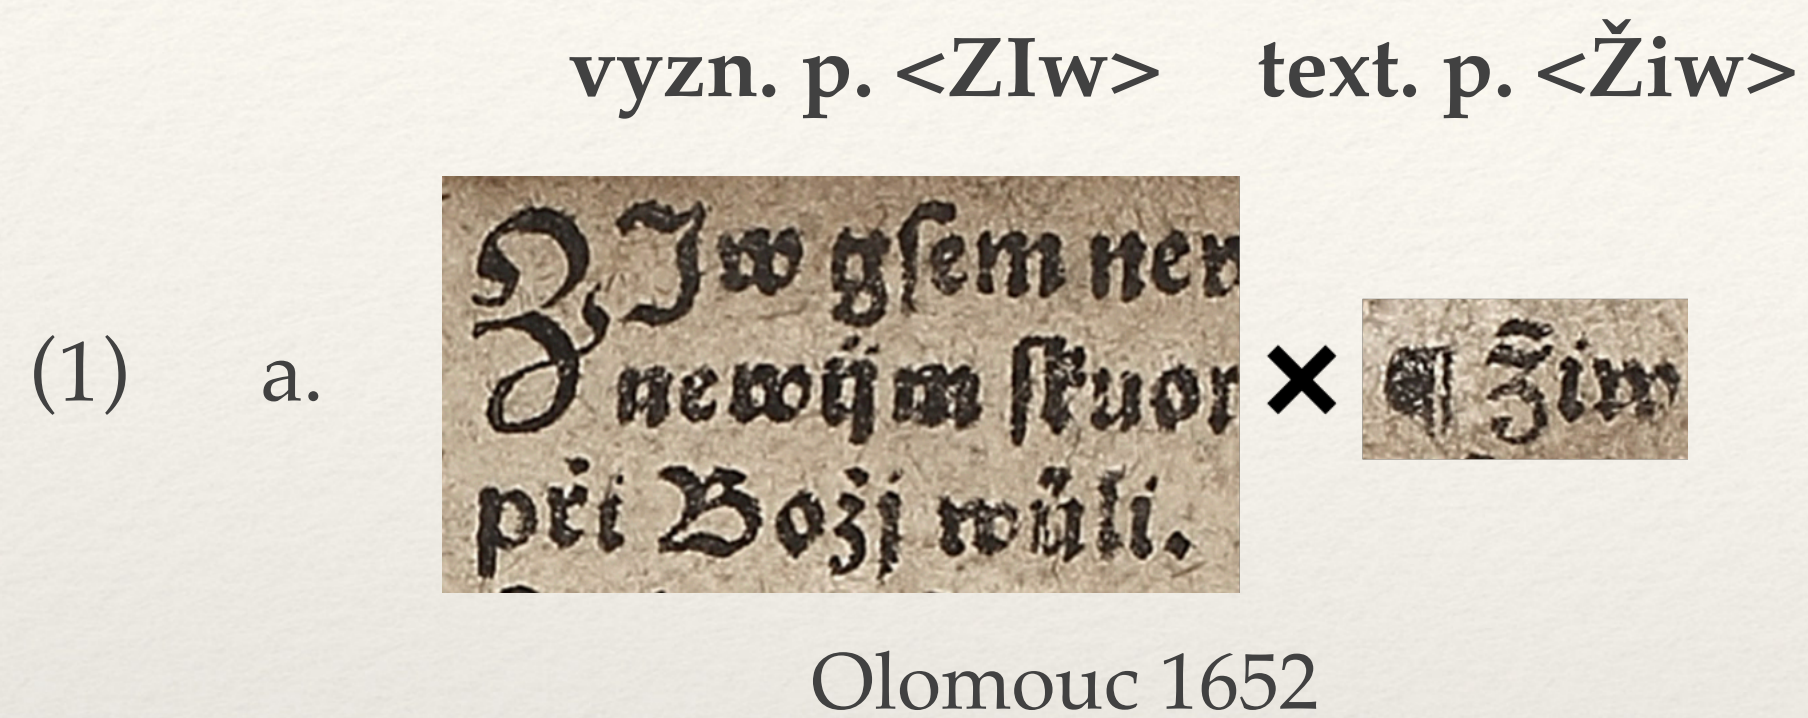 vyzn. p. <ZIw> text. p. <Žiw>
(1) a.
ZIw gſem
newijm
při Božj wůli.
× ¶ Žiw
Olomouc 1652